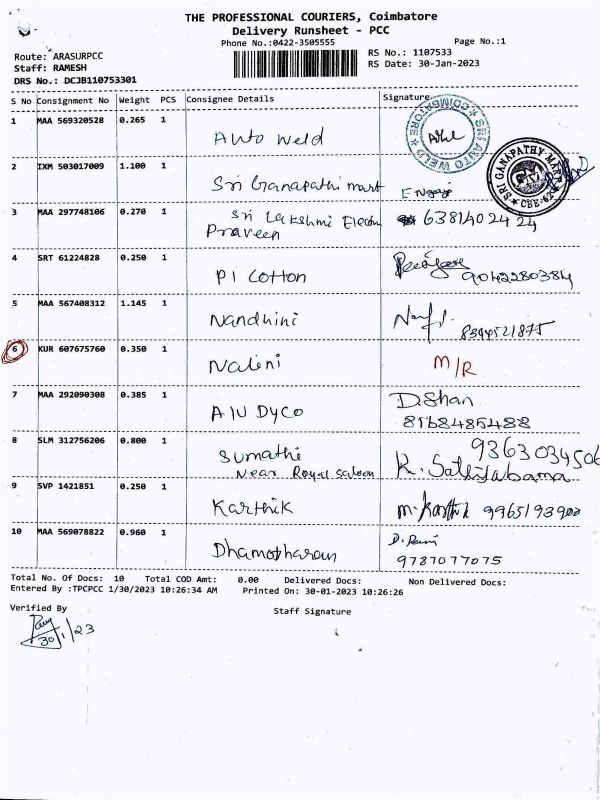 THE PROFESSIONAL COURIERS, Coimbatore
Delivery Runsheet - PCC
Phone No.:0422-3505555
Page No.:1
Route: ARASURPCC
Staff: RAMESH
DRS No.: DCJB110753301
RS No.: 1107533
RS Date: 30-Jan-2023
S No Consignment No Weight PCS Consignee Details Signature
1 MAA 569320528 0.265 1 Auto Weld
SRI AUTO WELD COIMBATORE
2 IXM 503017009 1.100 1 Sri Ganapathi mart
SRI GANAPATHY MART CBE-62
3 MAA 297748106 0.270 1 Sri Lakshmi
Praveen 6381402424
4 SRT 61224828 0.250 1 PI Cotton 9042280384
5 MAA 567408312 1.145 1 Nandhini 8344521875
6 KUR 607675760 0.350 1 Naleni M/R
7 MAA 292090308 0.385 1 AIU DYCO D.Shan
8168485488
8 SLM 312756206 0.800 1 Sumathi 9363034506
Near Royal saloon K. Sathiyabama
9 SVP 1421851 0.250 1 Karthik M. Karthik 9965193900
10 MAA 569078822 0.960 1 Dhamotharan
9787077075
Total No. Of Docs: 10 Total COD Amt: 0.00 Delivered Docs: Non Delivered Docs:
Entered By :TPCPCC 1/30/2023 10:26:34 AM Printed On: 30-01-2023 10:26:26
Verified By
Staff Signature
30/1/23